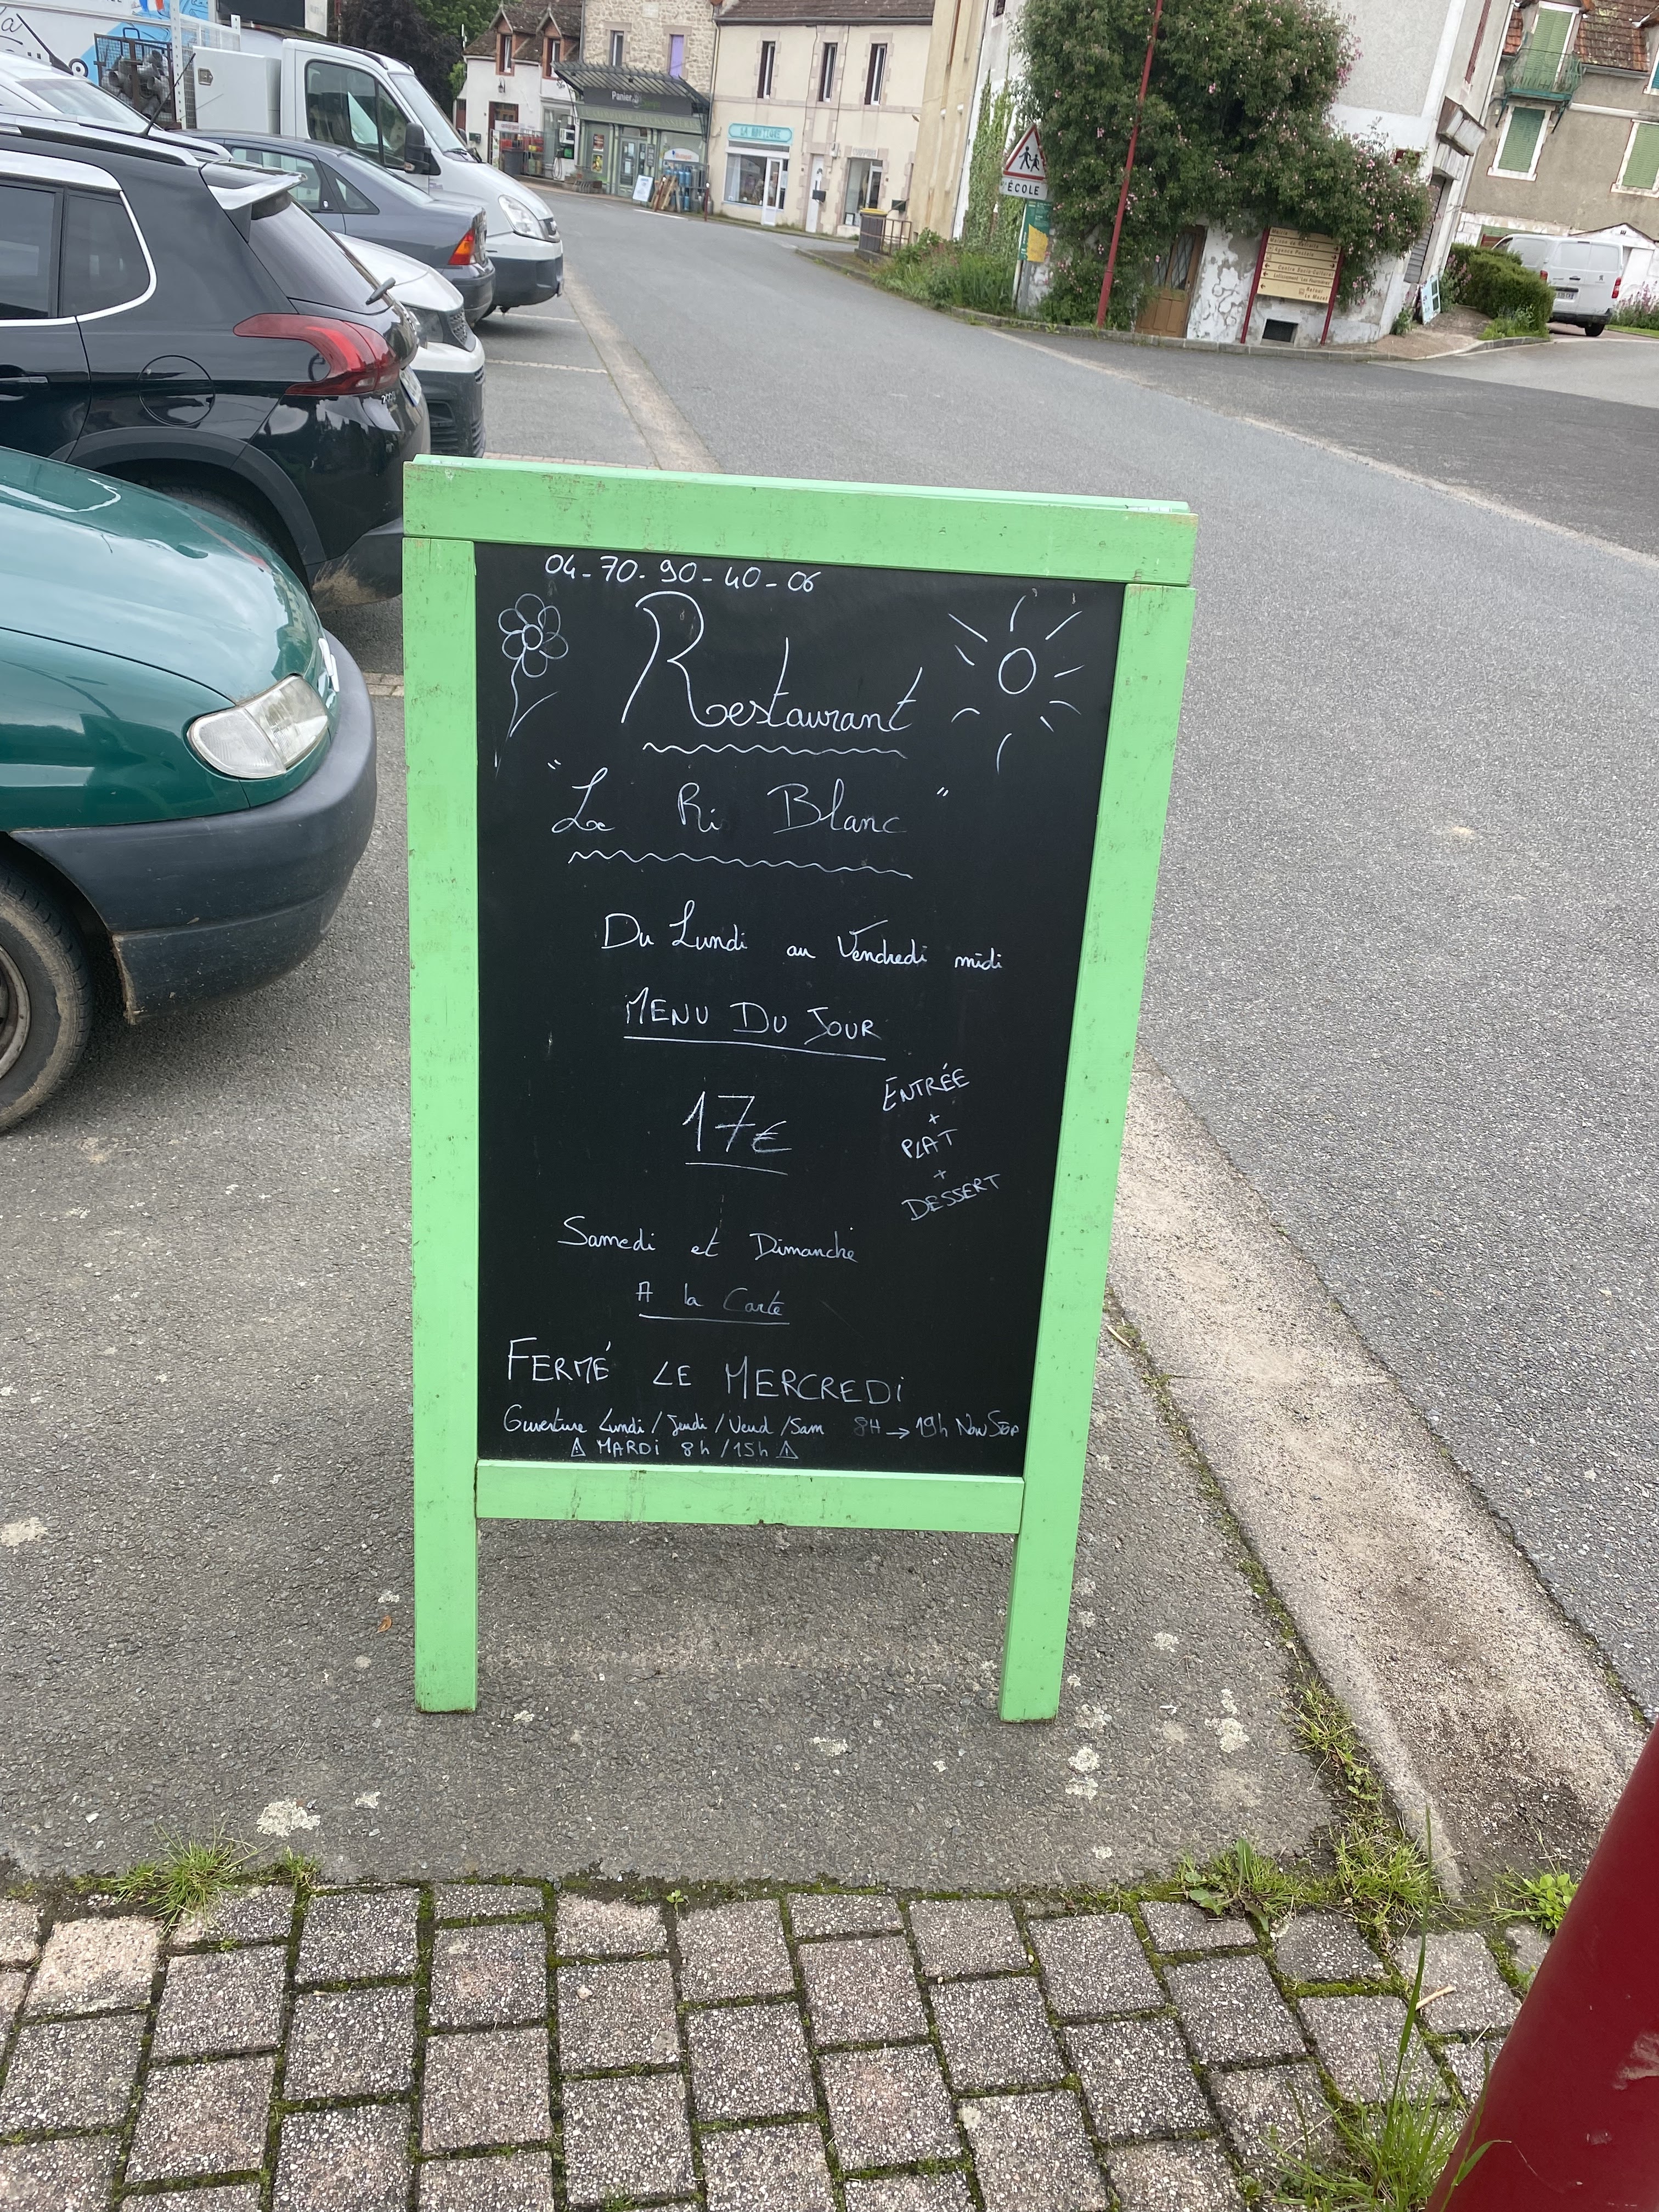 Panier
LA BOUTIQUE
ÉCOLE
Maison de Retraite
Agence Postale
2008
04-70-90-40-06
Restaurant
"Le Ri Blanc"
Du Lundi au Vendredi midi
MENU DU JOUR
17€
ENTRÉE
+
PLAT
+
DESSERT
Samedi et Dimanche
A la Carte
FERMÉ LE MERCREDI
Ouverture Lundi / Jeudi / Vend / Sam 8H → 19h Non Stop
⚠ MARDI 8h / 15h ⚠